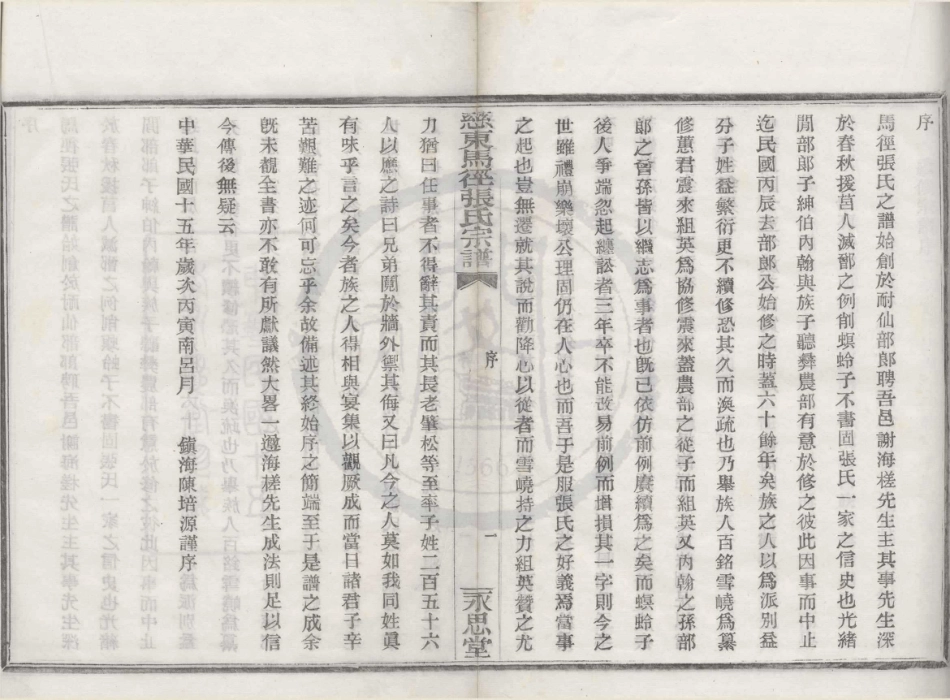 序
馬徑張氏之譜始創於耐仙部郎聘吾邑謝海槎先生主其事先生深
於春秋援莒人滅鄫之例削螟蛉子不書固張氏一家之信史也光緒
間部郎子紳伯內翰與族子聽彝農部有意於修之彼此因事而中止
迄民國丙辰去部郎公始修之時蓋六十餘年矣族之人以為派別益
分子姓益繁衍更不續修恐其久而渙疏也乃舉族人百銘雪嶢為纂
修蕙君震來組英為協修震來蓋農部之從子而組英又內翰之孫部
郎之曾孫皆以繼志為事者也旣已依仿前例賡續為之矣而螟蛉子
後人爭端忽起纏訟者三年卒不能改易前例而增損其一字則今之
世雖禮崩樂壞公理固仍在人心也而吾于是服張氏之好義焉當事
之起也豈無遷就其說而勸降心以從者而雪嶢持之力組英贊之尤
慈東馬徑張氏宗譜
序
一
永思堂
力猶曰任事者不得辭其責而其長老肇松等至率子姓二百五十六
人以應之詩曰兄弟鬩於牆外禦其侮又曰凡今之人莫如我同姓眞
有味乎言之矣今者族之人得相與宴集以觀厥成而當日諸君子辛
苦艱難之迹何可忘乎余故備述其終始序之簡端至于是譜之成余
旣未覩全書亦不敢有所獻議然大畧一遵海槎先生成法則足以信
今傳後無疑云
中華民國十五年歲次丙寅南呂月　鎭海陳培源謹序